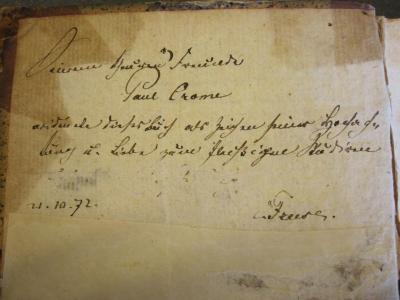 Seinem theuren Freunde
Paul Crome
widmete dieses Buch als Zeichen seiner Hochach-
tung u. Liebe zum fleißigen Studiren
21.10.72. Freese.